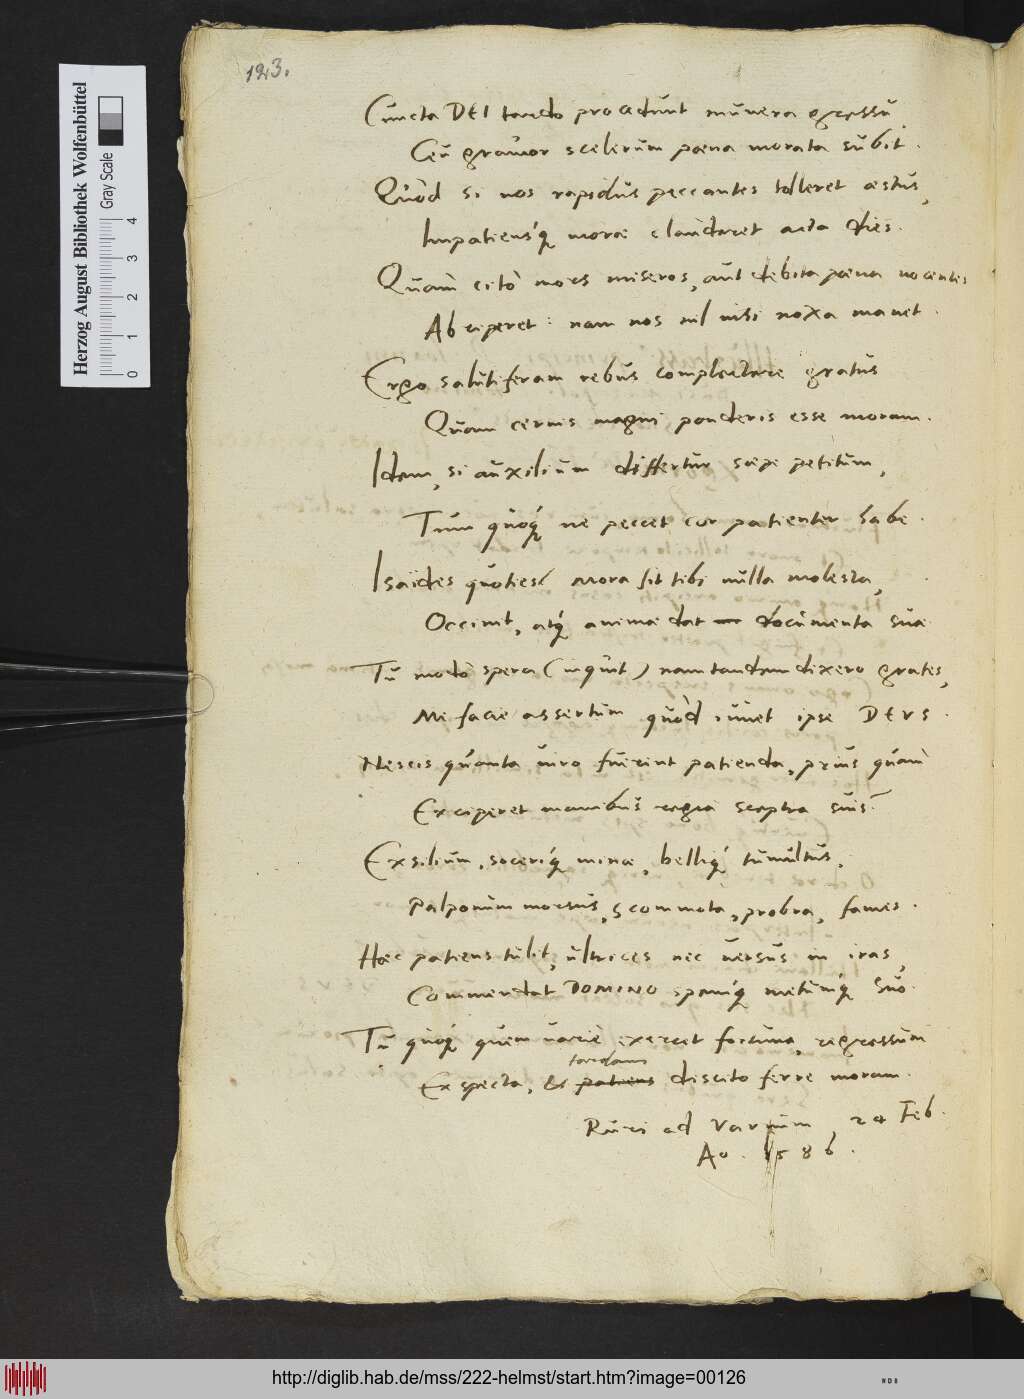 123.
Cuncta DEI tardo procedunt munera gressu
Ceu gravior scelerum pœna morata subit.
Quòd si nos rapidus peccantes tolleret æstus,
Impatiensq́ moræ clauderet acta dies.
Quàm citò mors miseros, aut debita pœna nocentes
Abriperet: nam nos nil nisi noxa manet.
Ergo salutiferam rebus complectare gratus
Quam cernis magni ponderis esse moram.
Idem, si auxilium differtur sæpe petitum,
Tum quoq́ ne peccet cor patienter habe.
Isaides quoties mora sit tibi nulla molesta,
Occinit, atq́ animæ dat documenta suæ
Tu modò spera (inquit) nam tandem dixero grates,
Me facie assertum quòd iuvet ipse DEVS.
Nescis quanta viro fuerint patienda, prius quàm
Exciperet manibus regia sceptra suis?
Exsilium, soceriq́ minæ, belliq́ tumultus,
morsus, scommata, probra, fames.
Hæc patiens tulit, ultrices nec versus in iras,
Commendat DOMINO spemq́ metumq́ suo.
Tu quoq́ quem variè exercet fortuna, regressum
tardam
Exspecta, et patiens discito ferre moram.
Ruri ad Varum, 24 Feb.
Ao. 1586.
Herzog August Bibliothek Wolfenbüttel
Gray Scale
0 1 2 3 4
http://diglib.hab.de/mss/222-helmst/start.htm?image=00126